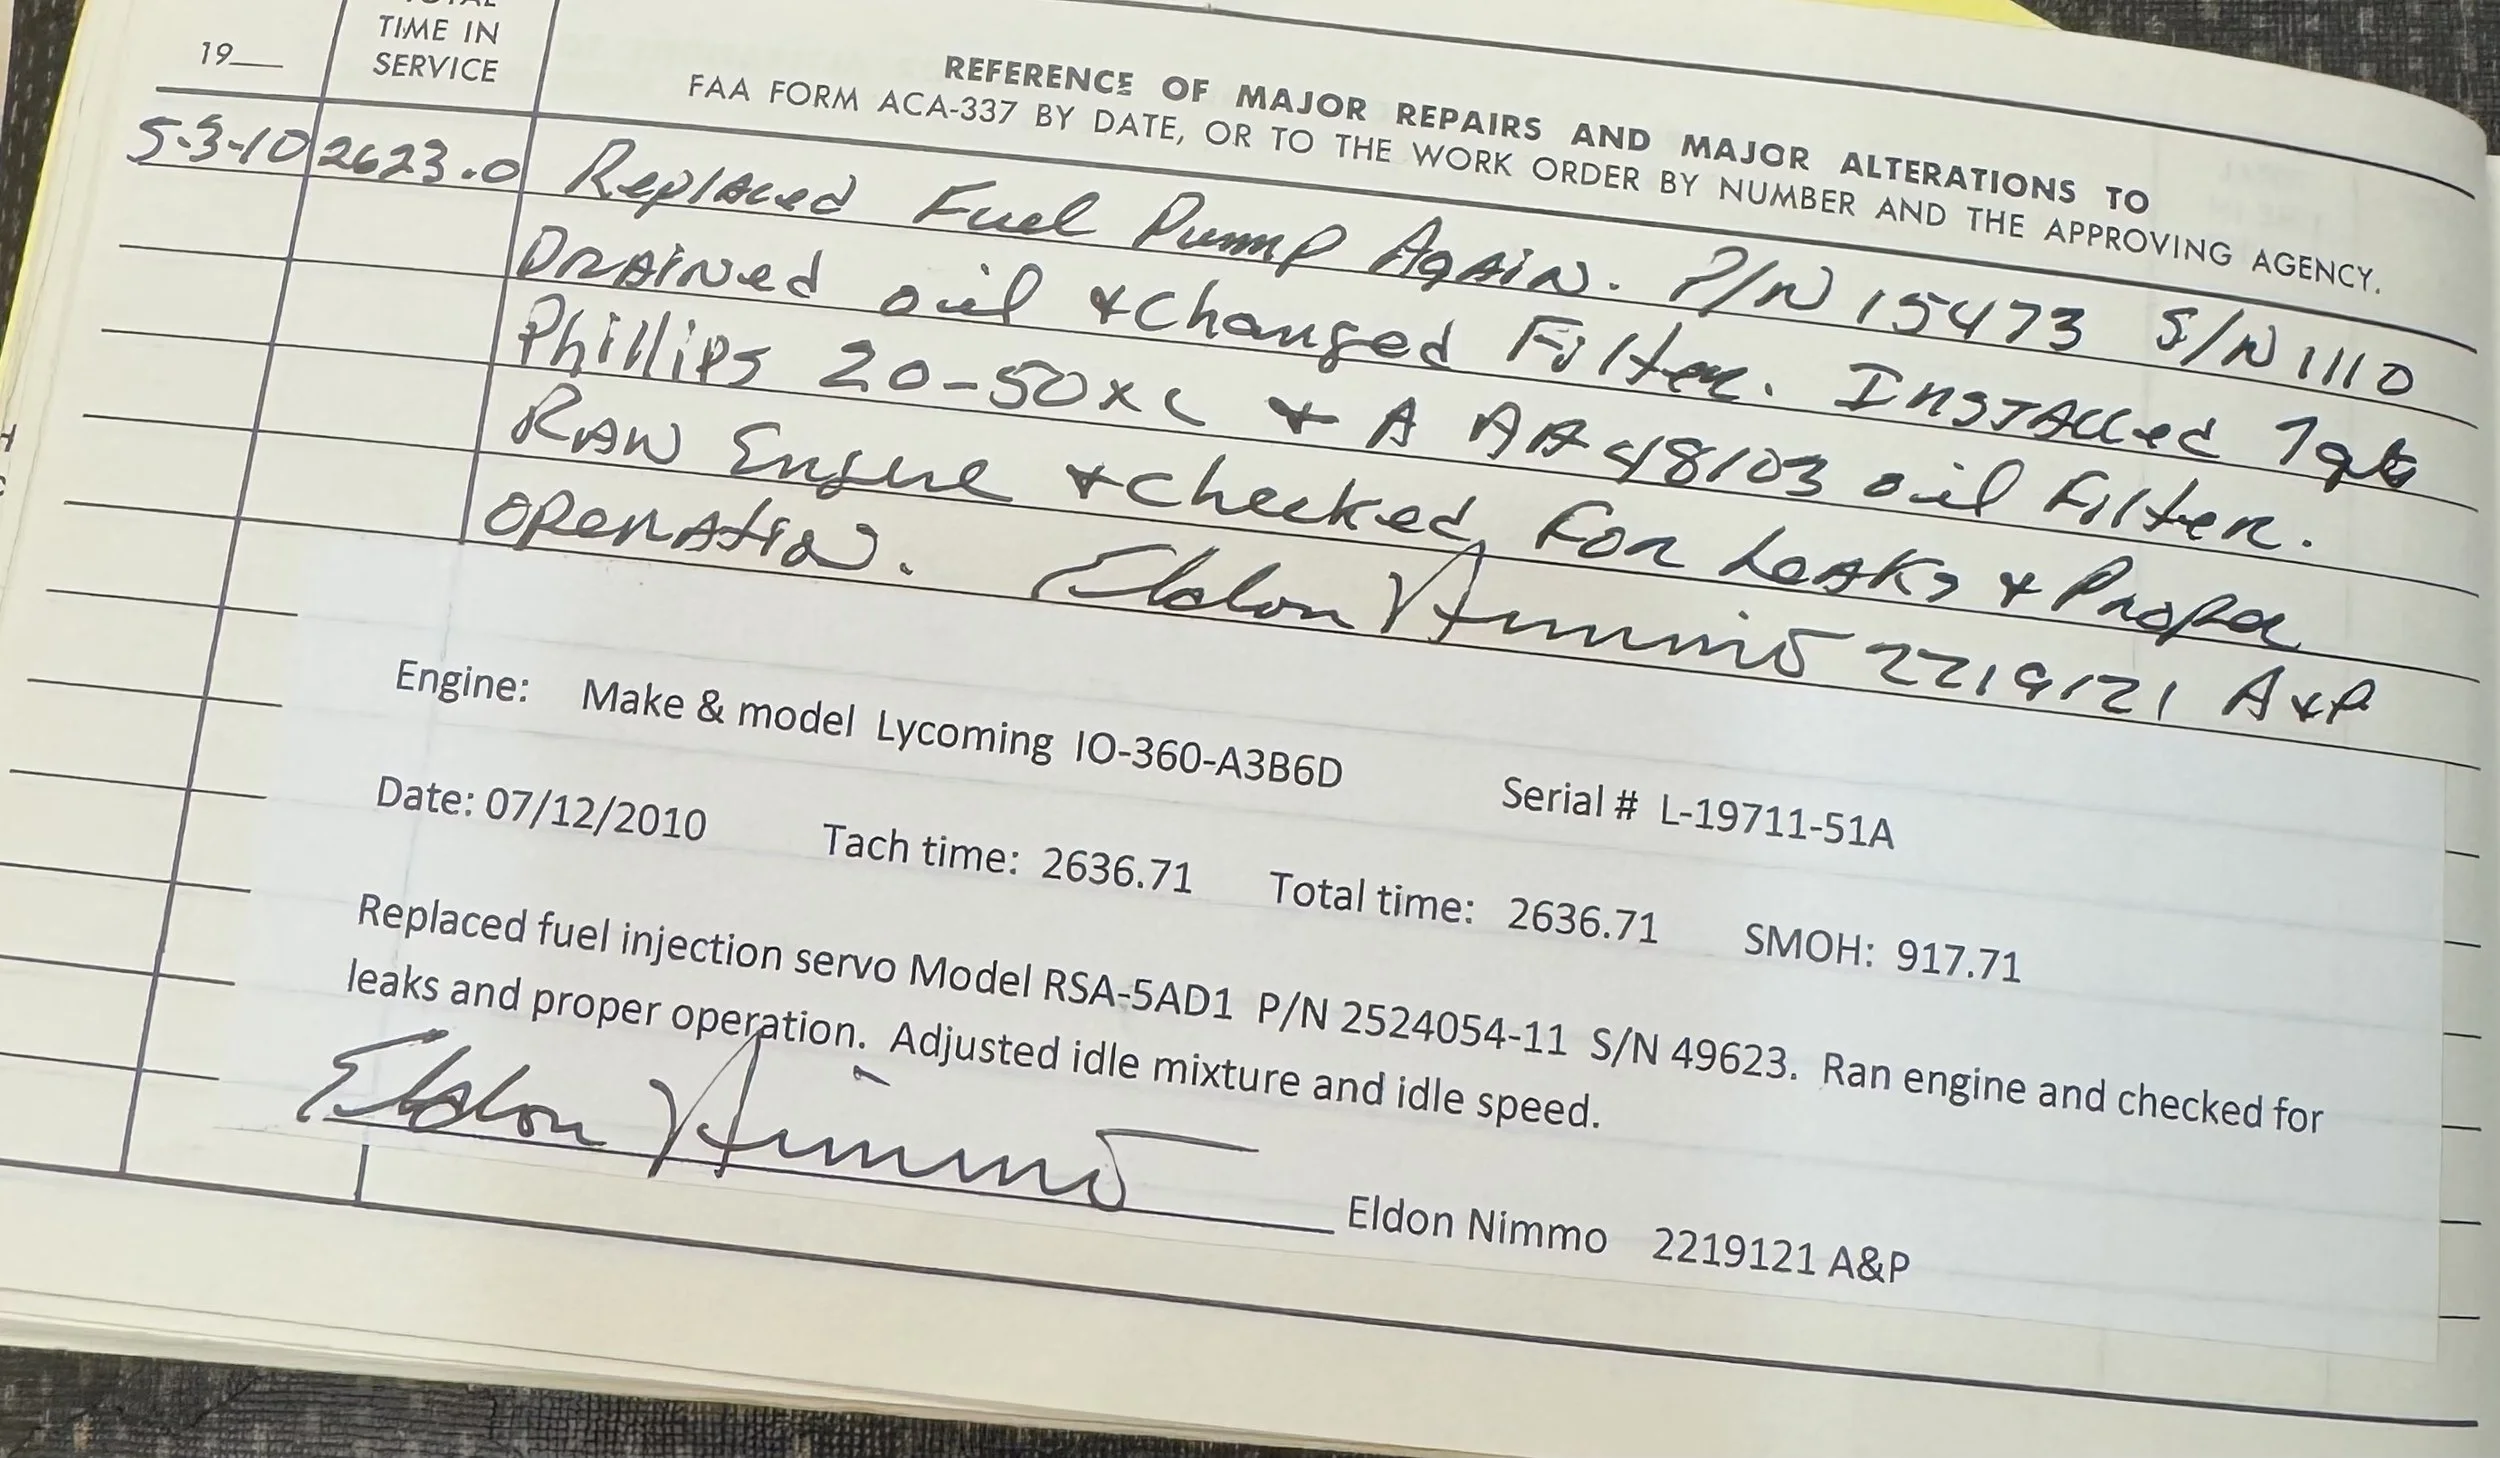 TIME IN
19__ SERVICE
REFERENCE OF MAJOR REPAIRS AND MAJOR ALTERATIONS TO
FAA FORM ACA-337 BY DATE, OR TO THE WORK ORDER BY NUMBER AND THE APPROVING AGENCY.
5-3-10 2623.0 Replaced Fuel Pump Again. P/N 15473 S/N 1110
Drained oil & changed Filter. Installed 7qts
Phillips 20-50xc & A AA48103 oil Filter.
Ran Engine & checked For Leaks & Proper
operation. Eldon Nimmo 2219121 A&P
Engine: Make & model Lycoming IO-360-A3B6D Serial # L-19711-51A
Date: 07/12/2010 Tach time: 2636.71 Total time: 2636.71 SMOH: 917.71
Replaced fuel injection servo Model RSA-5AD1 P/N 2524054-11 S/N 49623. Ran engine and checked for
leaks and proper operation. Adjusted idle mixture and idle speed.
Eldon Nimmo Eldon Nimmo 2219121 A&P